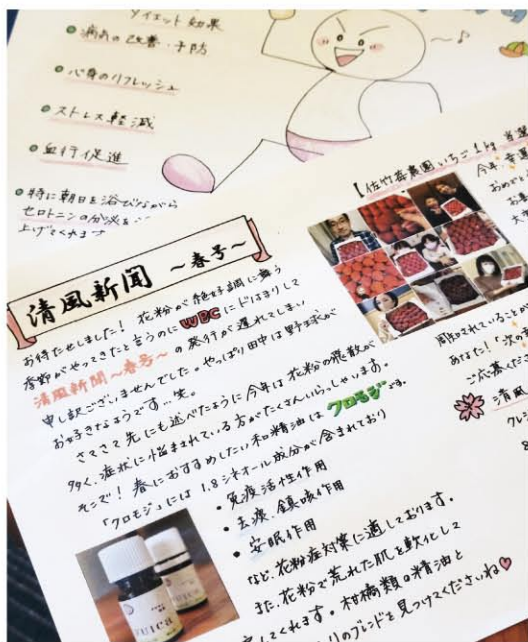 ダイエット効果
病気の改善・予防
心身のリフレッシュ
ストレス軽減
血行促進
特に朝日を浴びながら
セロトニンの分泌を・・
上げてくれます
〜♪
【佐竹苺農園いちご1kg 当選
今年、幸運
おめでと
清風新聞 〜春号〜
お待たせしました! 花粉が絶好調に舞う
季節がやってきたと言うのにWBCにドはまりして
清風新聞〜春号〜の発行が遅れてしまい
申し訳ございませんでした。やっぱり田中は野球が
お好きなようです…笑。
さてさて先にも述べたように今年は花粉の飛散が
多く、症状に悩まされている方がたくさんいらっしゃいます。
そこで! 春におすすめしたい和精油はクロモジです。
「クロモジ」には1.8シネオール成分が含まれており
・免疫活性作用
・去痰、鎮咳作用
・安眠作用
など、花粉症対策に適しております。
また、花粉で荒れた肌を軟化して
してくれます。柑橘類の精油と
りのブレンドを見つけてくださいね
yuica
yuica
あなた!「次の
ご応募くださ
清風
クレ